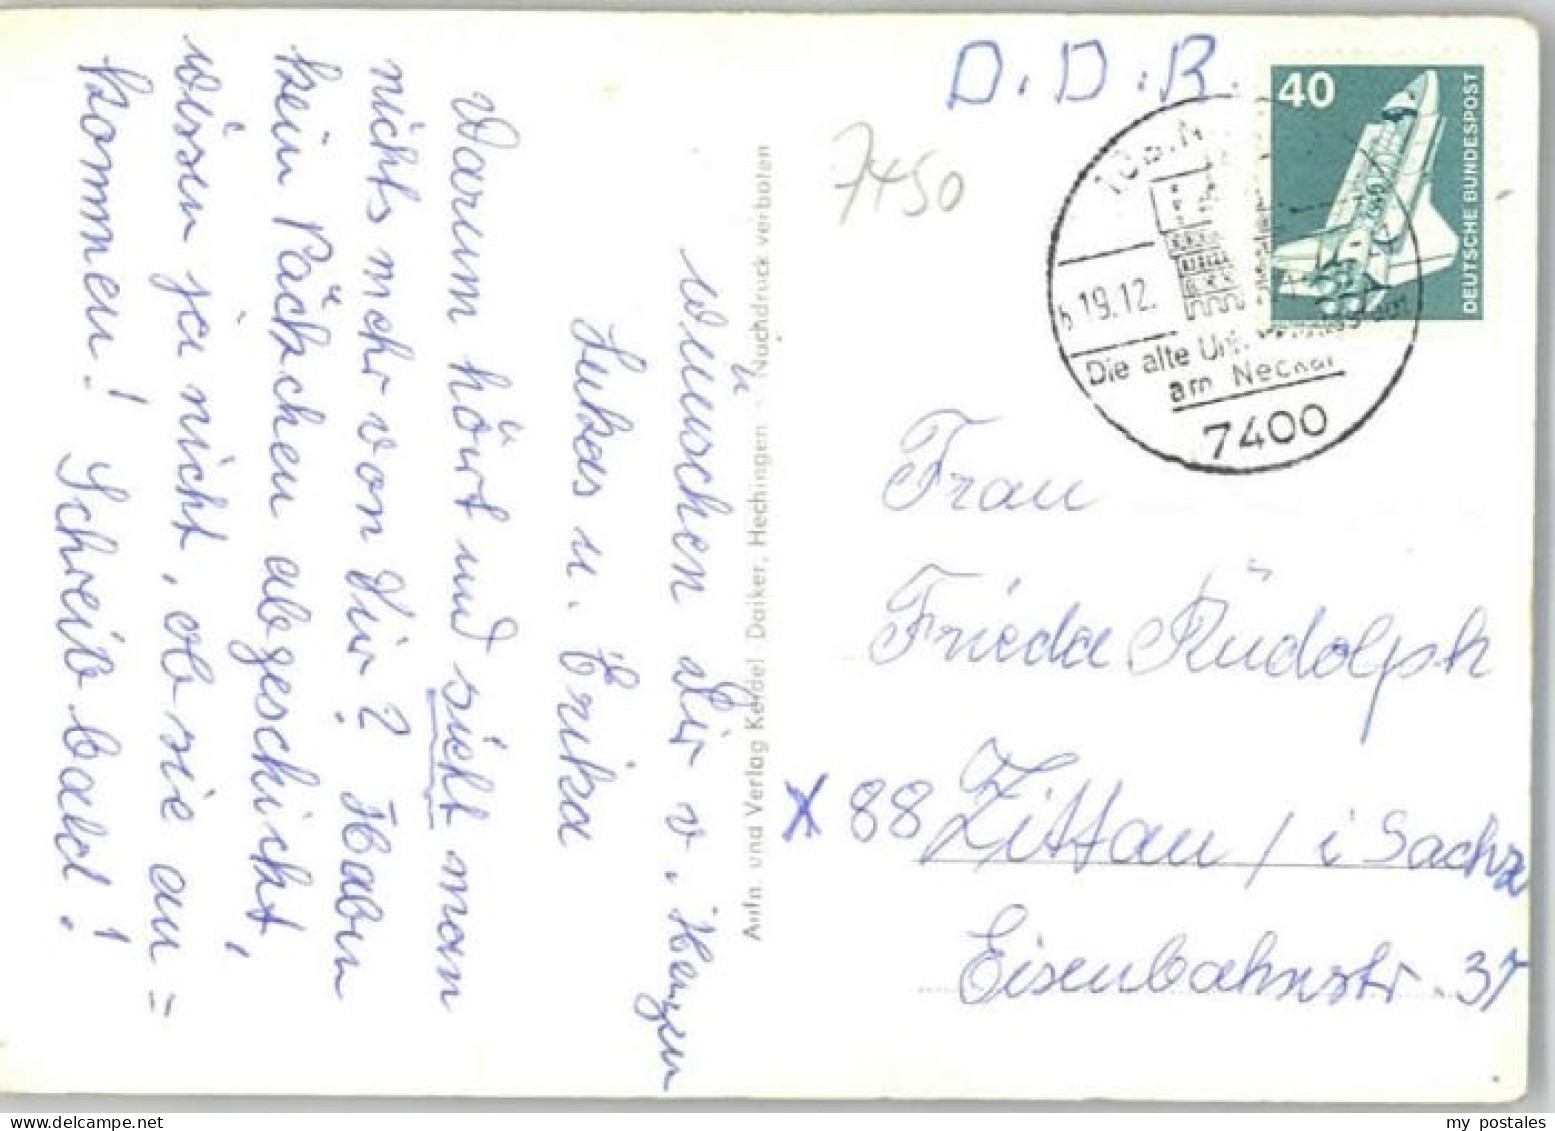 Warum hört und sieht man
nichts mehr von Dir? Haben
kein Päckchen abgeschickt,
wissen ja nicht, ob sie an=
kommen! Schreib bald!
wünschen Dir v. Herzen
Lukas u. Erika
Aufn. und Verlag Keidel-Daiker, Hechingen - Nachdruck verboten
D.D.R.
7450
40
DEUTSCHE BUNDESPOST
19.12.
Die alte
am Neckar
7400
Frau
Frieda Rudolph
X 88 Zittau / i Sachs
Eisenbahnstr. 37
my postales